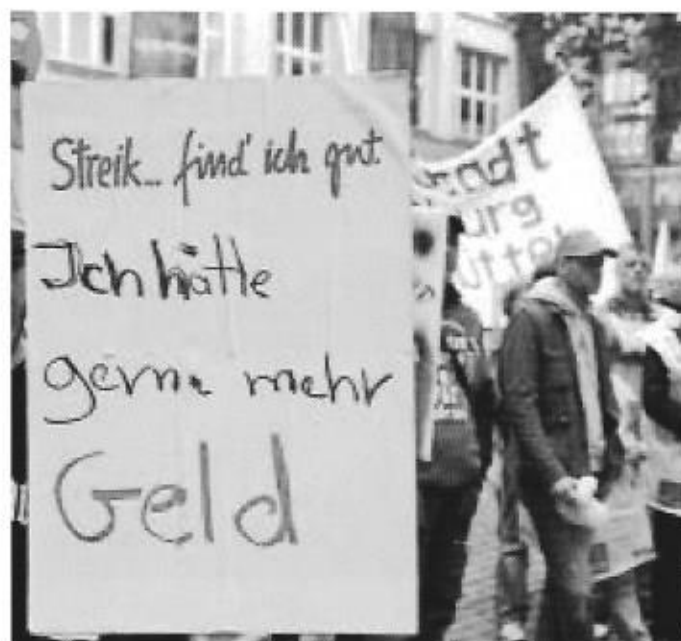 Streik... find' ich gut.
Ich hätte
gerne mehr
Geld
urg